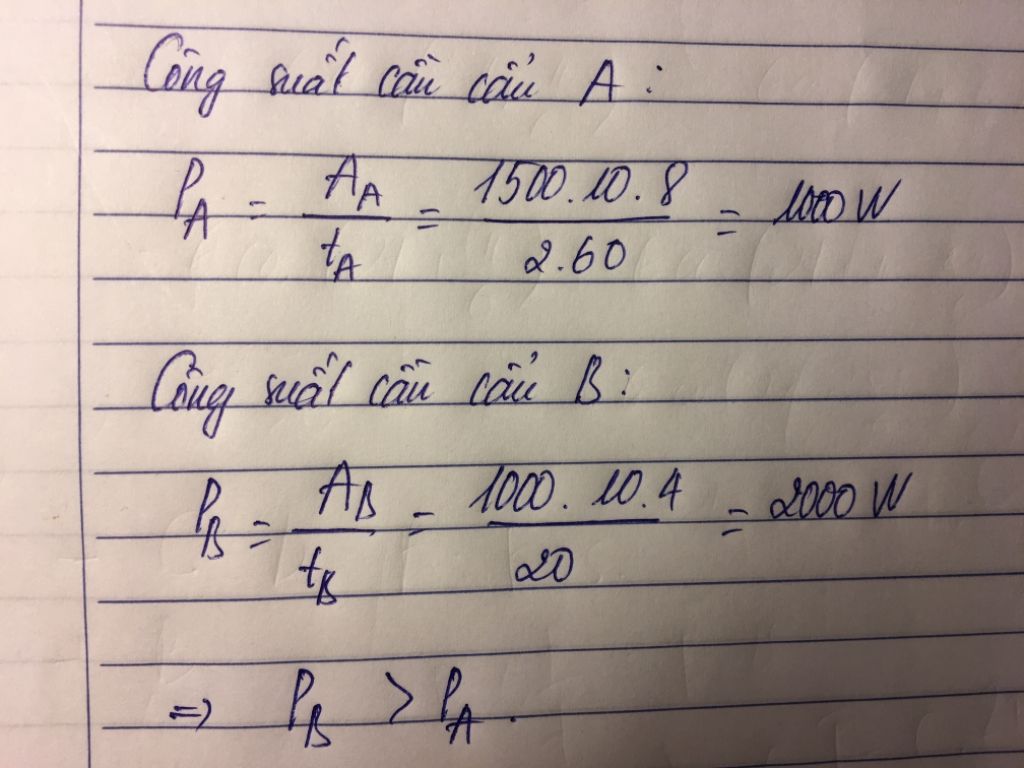 Công suất cần cẩu A :
P_A = A_A / t_A = 1500.10.8 / 2.60 = 1000 W
Công suất cần cẩu B :
P_B = A_B / t_B = 1000.10.4 / 20 = 2000 W
=> P_B > P_A .